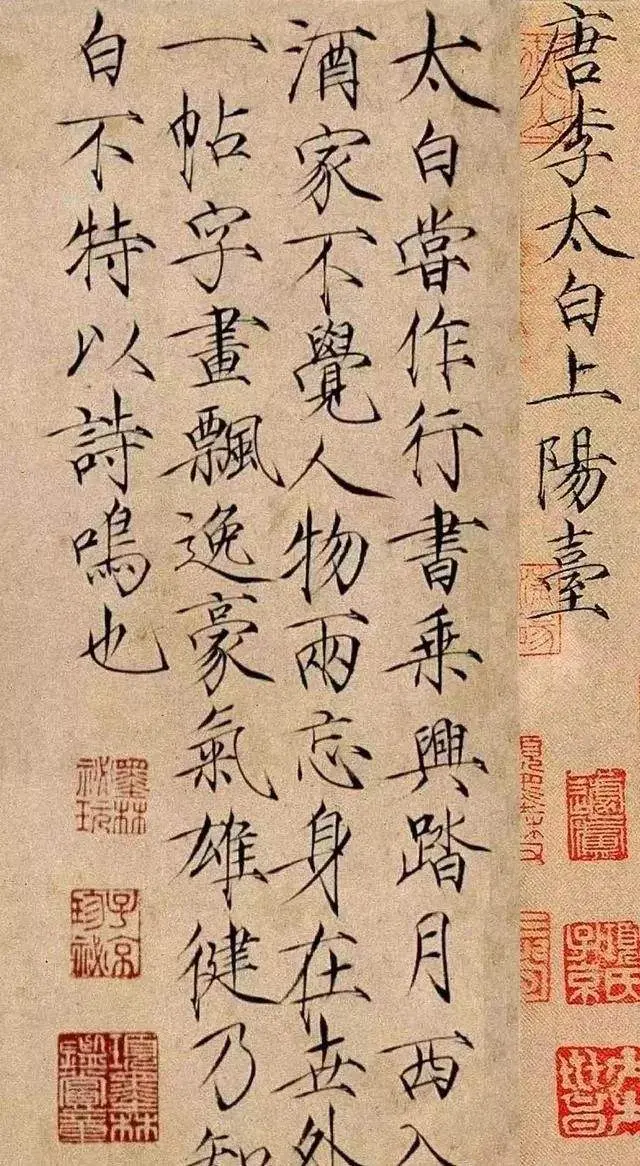 唐李太白上陽臺
太白嘗作行書乘興踏月西入
酒家不覺人物兩忘身在世外
一帖字畫飄逸豪氣雄健乃知
白不特以詩鳴也
項氏子京
墨林祕玩
子京珍祕
項墨林鑑賞章